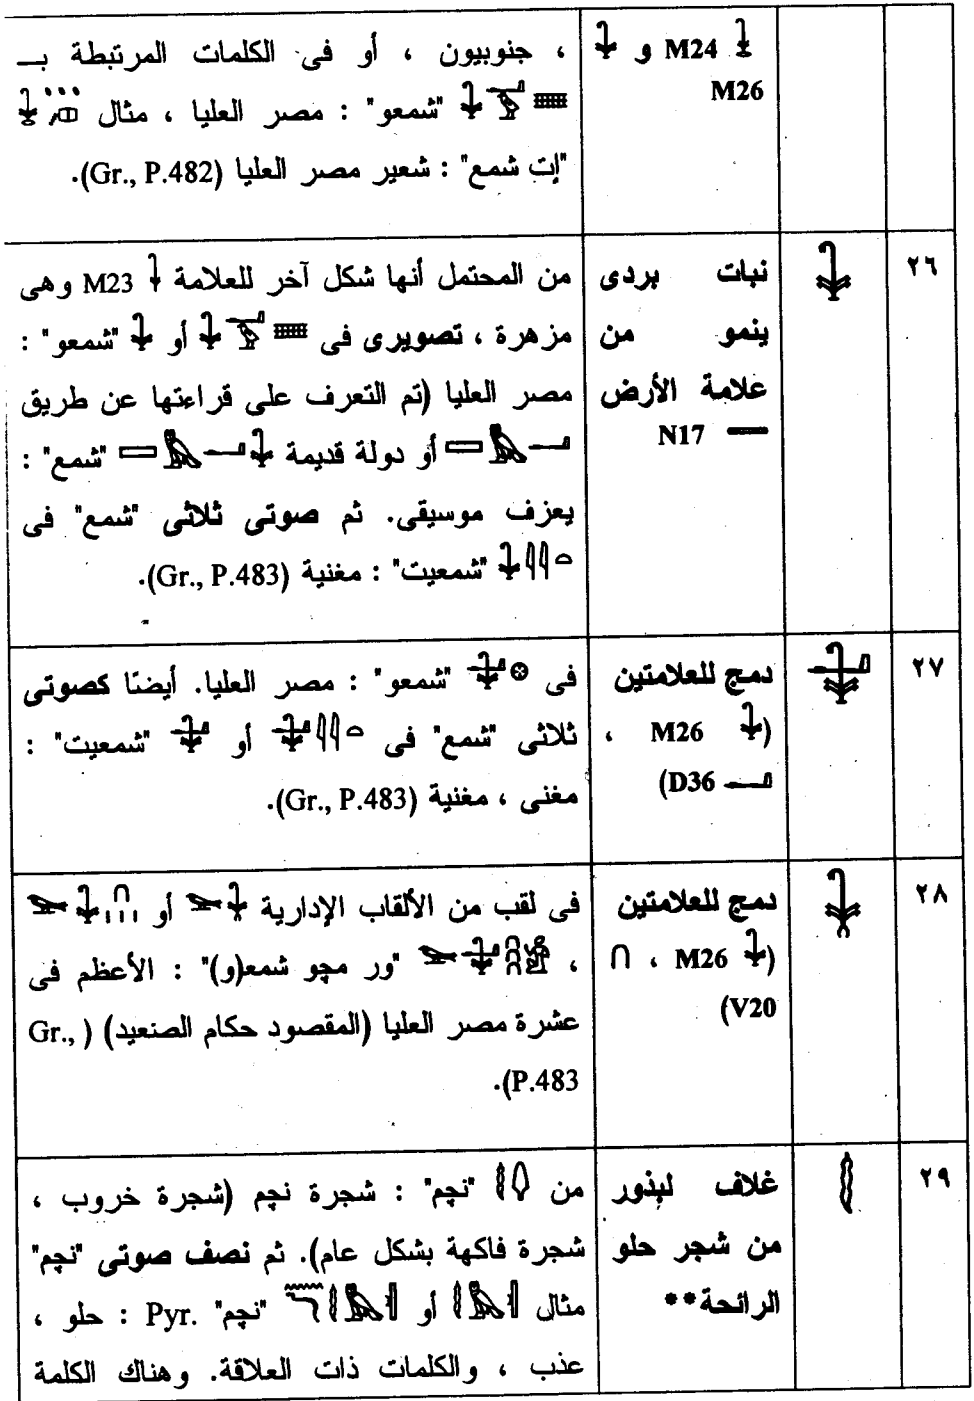 𓇗 M24 و 𓇓
M26
، جنوبيون ، أو فى الكلمات المرتبطة بـ
"شمعو" : مصر العليا ، مثال
"إت شمع" : شعير مصر العليا (Gr., P.482).
٢٦
نبات بردى
ينمو من
علامة الأرض
N17
من المحتمل أنها شكل آخر للعلامة M23 وهى
مزهرة ، تصويرى فى أو "شمعو" :
مصر العليا (تم التعرف على قراءتها عن طريق
أو دولة قديمة "شمع" :
يعزف موسيقى. ثم صوتى ثلاثى "شمع" فى
"شمعيت" : مغنية (Gr., P.483).
٢٧
دمج للعلامتين
(M26 ،
D36)
فى "شمعو" : مصر العليا. أيضًا كصوتى
ثلاثى "شمع" فى أو "شمعيت" :
مغنى ، مغنية (Gr., P.483).
٢٨
دمج للعلامتين
(M26 ،
V20)
فى لقب من الألقاب الإدارية أو
، "ور مچو شمع(و)" : الأعظم فى
عشرة مصر العليا (المقصود حكام الصنعيد) (Gr.,
P.483).
٢٩
غلاف لبذور
من شجر حلو
الرائحة**
من "نچم" : شجرة نچم (شجرة خروب ،
شجرة فاكهة بشكل عام). ثم نصف صوتى "نچم"
مثال أو "نچم" Pyr. : حلو ،
عذب ، والكلمات ذات العلاقة. وهناك الكلمة